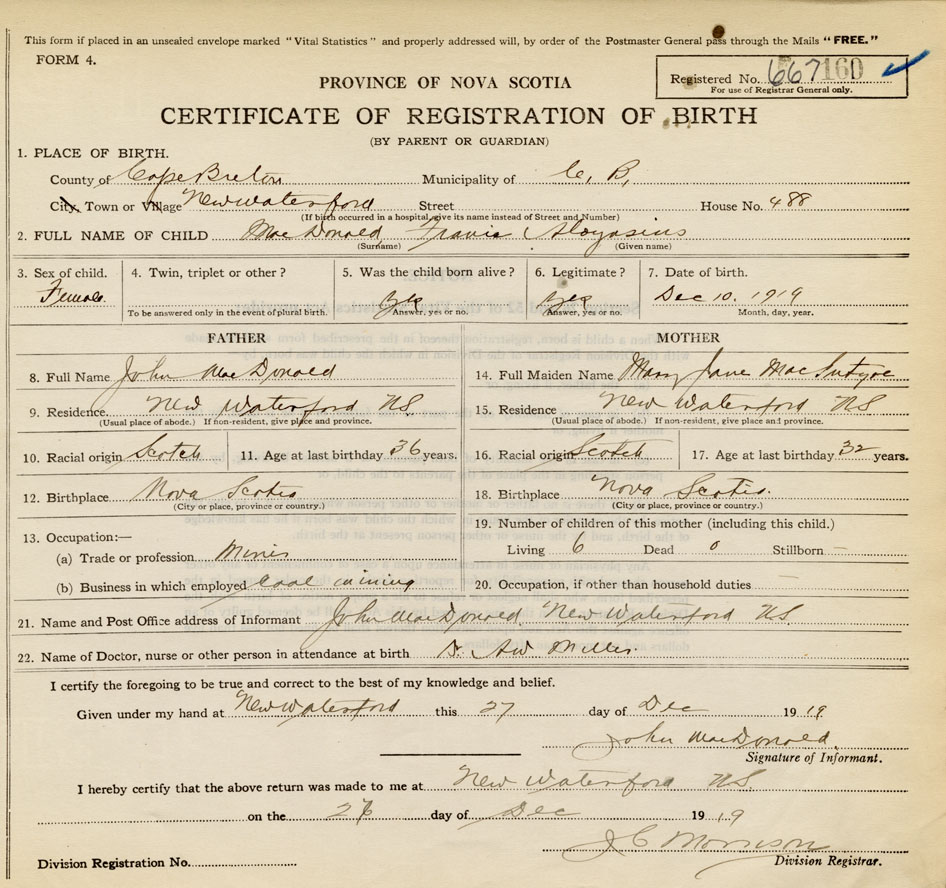 This form if placed in an unsealed envelope marked "Vital Statistics" and properly addressed will, by order of the Postmaster General pass through the Mails "FREE."
FORM 4.
Registered No. 667160
For use of Registrar General only.
PROVINCE OF NOVA SCOTIA
CERTIFICATE OF REGISTRATION OF BIRTH
(BY PARENT OR GUARDIAN)
1. PLACE OF BIRTH.
County of Cape Breton Municipality of C. B.
City, Town or Village New Waterford Street House No. 488
(If birth occurred in a hospital, give its name instead of Street and Number)
2. FULL NAME OF CHILD MacDonald, Travis Aloyasius
(Surname) (Given name)
3. Sex of child. 4. Twin, triplet or other? 5. Was the child born alive? 6. Legitimate? 7. Date of birth.
Female. Yes Yes Dec 10. 1919
To be answered only in the event of plural birth. Answer, yes or no. Answer, yes or no. Month, day, year.
FATHER MOTHER
8. Full Name John MacDonald 14. Full Maiden Name Mary Jane MacIntyre
9. Residence New Waterford NS 15. Residence New Waterford NS
(Usual place of abode.) If non-resident, give place and province. (Usual place of abode.) If non-resident, give place and province.
10. Racial origin Scotch 11. Age at last birthday 36 years. 16. Racial origin Scotch 17. Age at last birthday 32 years.
12. Birthplace Nova Scotia 18. Birthplace Nova Scotia.
(City or place, province or country.) (City or place, province or country.)
13. Occupation:— 19. Number of children of this mother (including this child.)
(a) Trade or profession Miner Living 6 Dead 0 Stillborn —
(b) Business in which employed Coal mining 20. Occupation, if other than household duties —
21. Name and Post Office address of Informant John MacDonald New Waterford NS
22. Name of Doctor, nurse or other person in attendance at birth Miller
I certify the foregoing to be true and correct to the best of my knowledge and belief.
Given under my hand at New Waterford this 27 day of Dec 1919
John MacDonald
Signature of Informant.
I hereby certify that the above return was made to me at New Waterford NS
on the day of Dec 1919
J C Morrison
Division Registration No. Division Registrar.